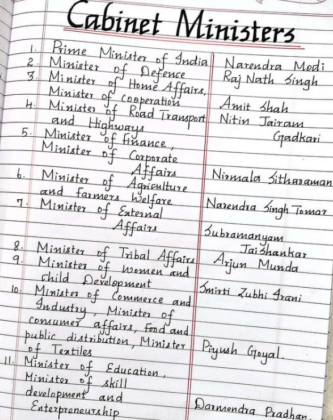 Cabinet Ministers
1. Prime Minister of India Narendra Modi
2. Minister of Defence Raj Nath Singh
3. Minister of Home Affairs,
Minister of Cooperation Amit Shah
4. Minister of Road Transport Nitin Jairam
and Highways Gadkari
5. Minister of Finance,
Minister of Corporate
Affairs Nirmala Sitharaman
6. Minister of Agriculture
and farmers Welfare Narendra Singh Tomar
7. Minister of External
Affairs Subramanyam
Jaishankar
8. Minister of Tribal Affairs Arjun Munda
9. Minister of women and
child Development Smirti Zubhi Irani
10. Minister of Commerce and
Industry, Minister of
consumer affairs, Food and
public distribution, Minister
of Textiles Piyush Goyal.
11. Minister of Education,
Minister of skill
development and
Enterpreneurship Darmendra Pradhan.